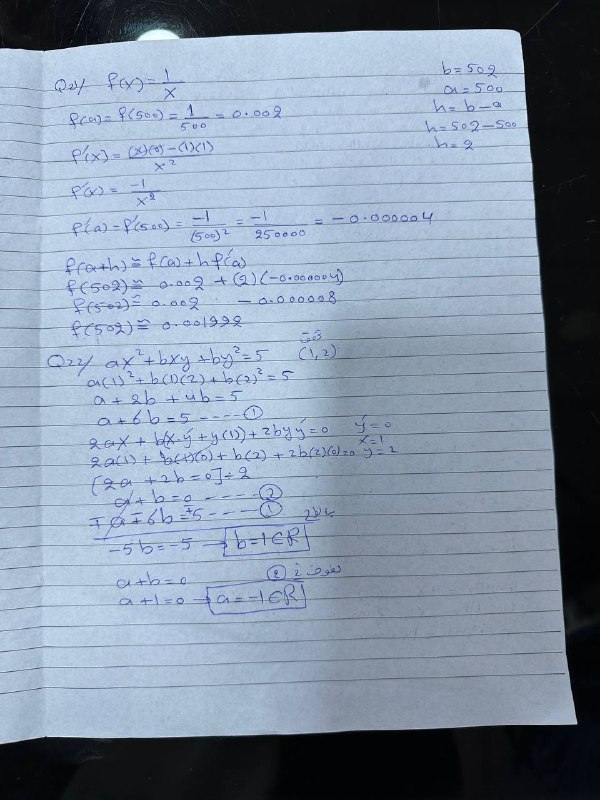 Q21/ f(x) = 1/x
b = 502
a = 500
h = b - a
h = 502 - 500
h = 2
f(a) = f(500) = 1/500 = 0.002
f'(x) = (x)(0) - (1)(1) / x²
f'(x) = -1/x²
f'(a) = f'(500) = -1/(500)² = -1/250000 = -0.000004
f(a+h) ≅ f(a) + h f'(a)
f(502) ≅ 0.002 + (2)(-0.000004)
f(502) ≅ 0.002 - 0.000008
f(502) ≅ 0.001992
Q22/ ax² + bxy + by² = 5 (1,2)
a(1)² + b(1)(2) + b(2)² = 5
a + 2b + 4b = 5
a + 6b = 5 ---- ①
2ax + b(x·y' + y(1)) + 2byy' = 0 y' = 0
x = 1
2a(1) + b(1)(0) + b(2) + 2b(2)(0) = 0 y = 2
[2a + 2b = 0] ÷ 2
a + b = 0 ---- ②
∓a ∓ 6b = ∓5 ---- ①
-5b = -5 → b = 1 ∈ R
a + b = 0 نعوض في ②
a + 1 = 0 → a = -1 ∈ R